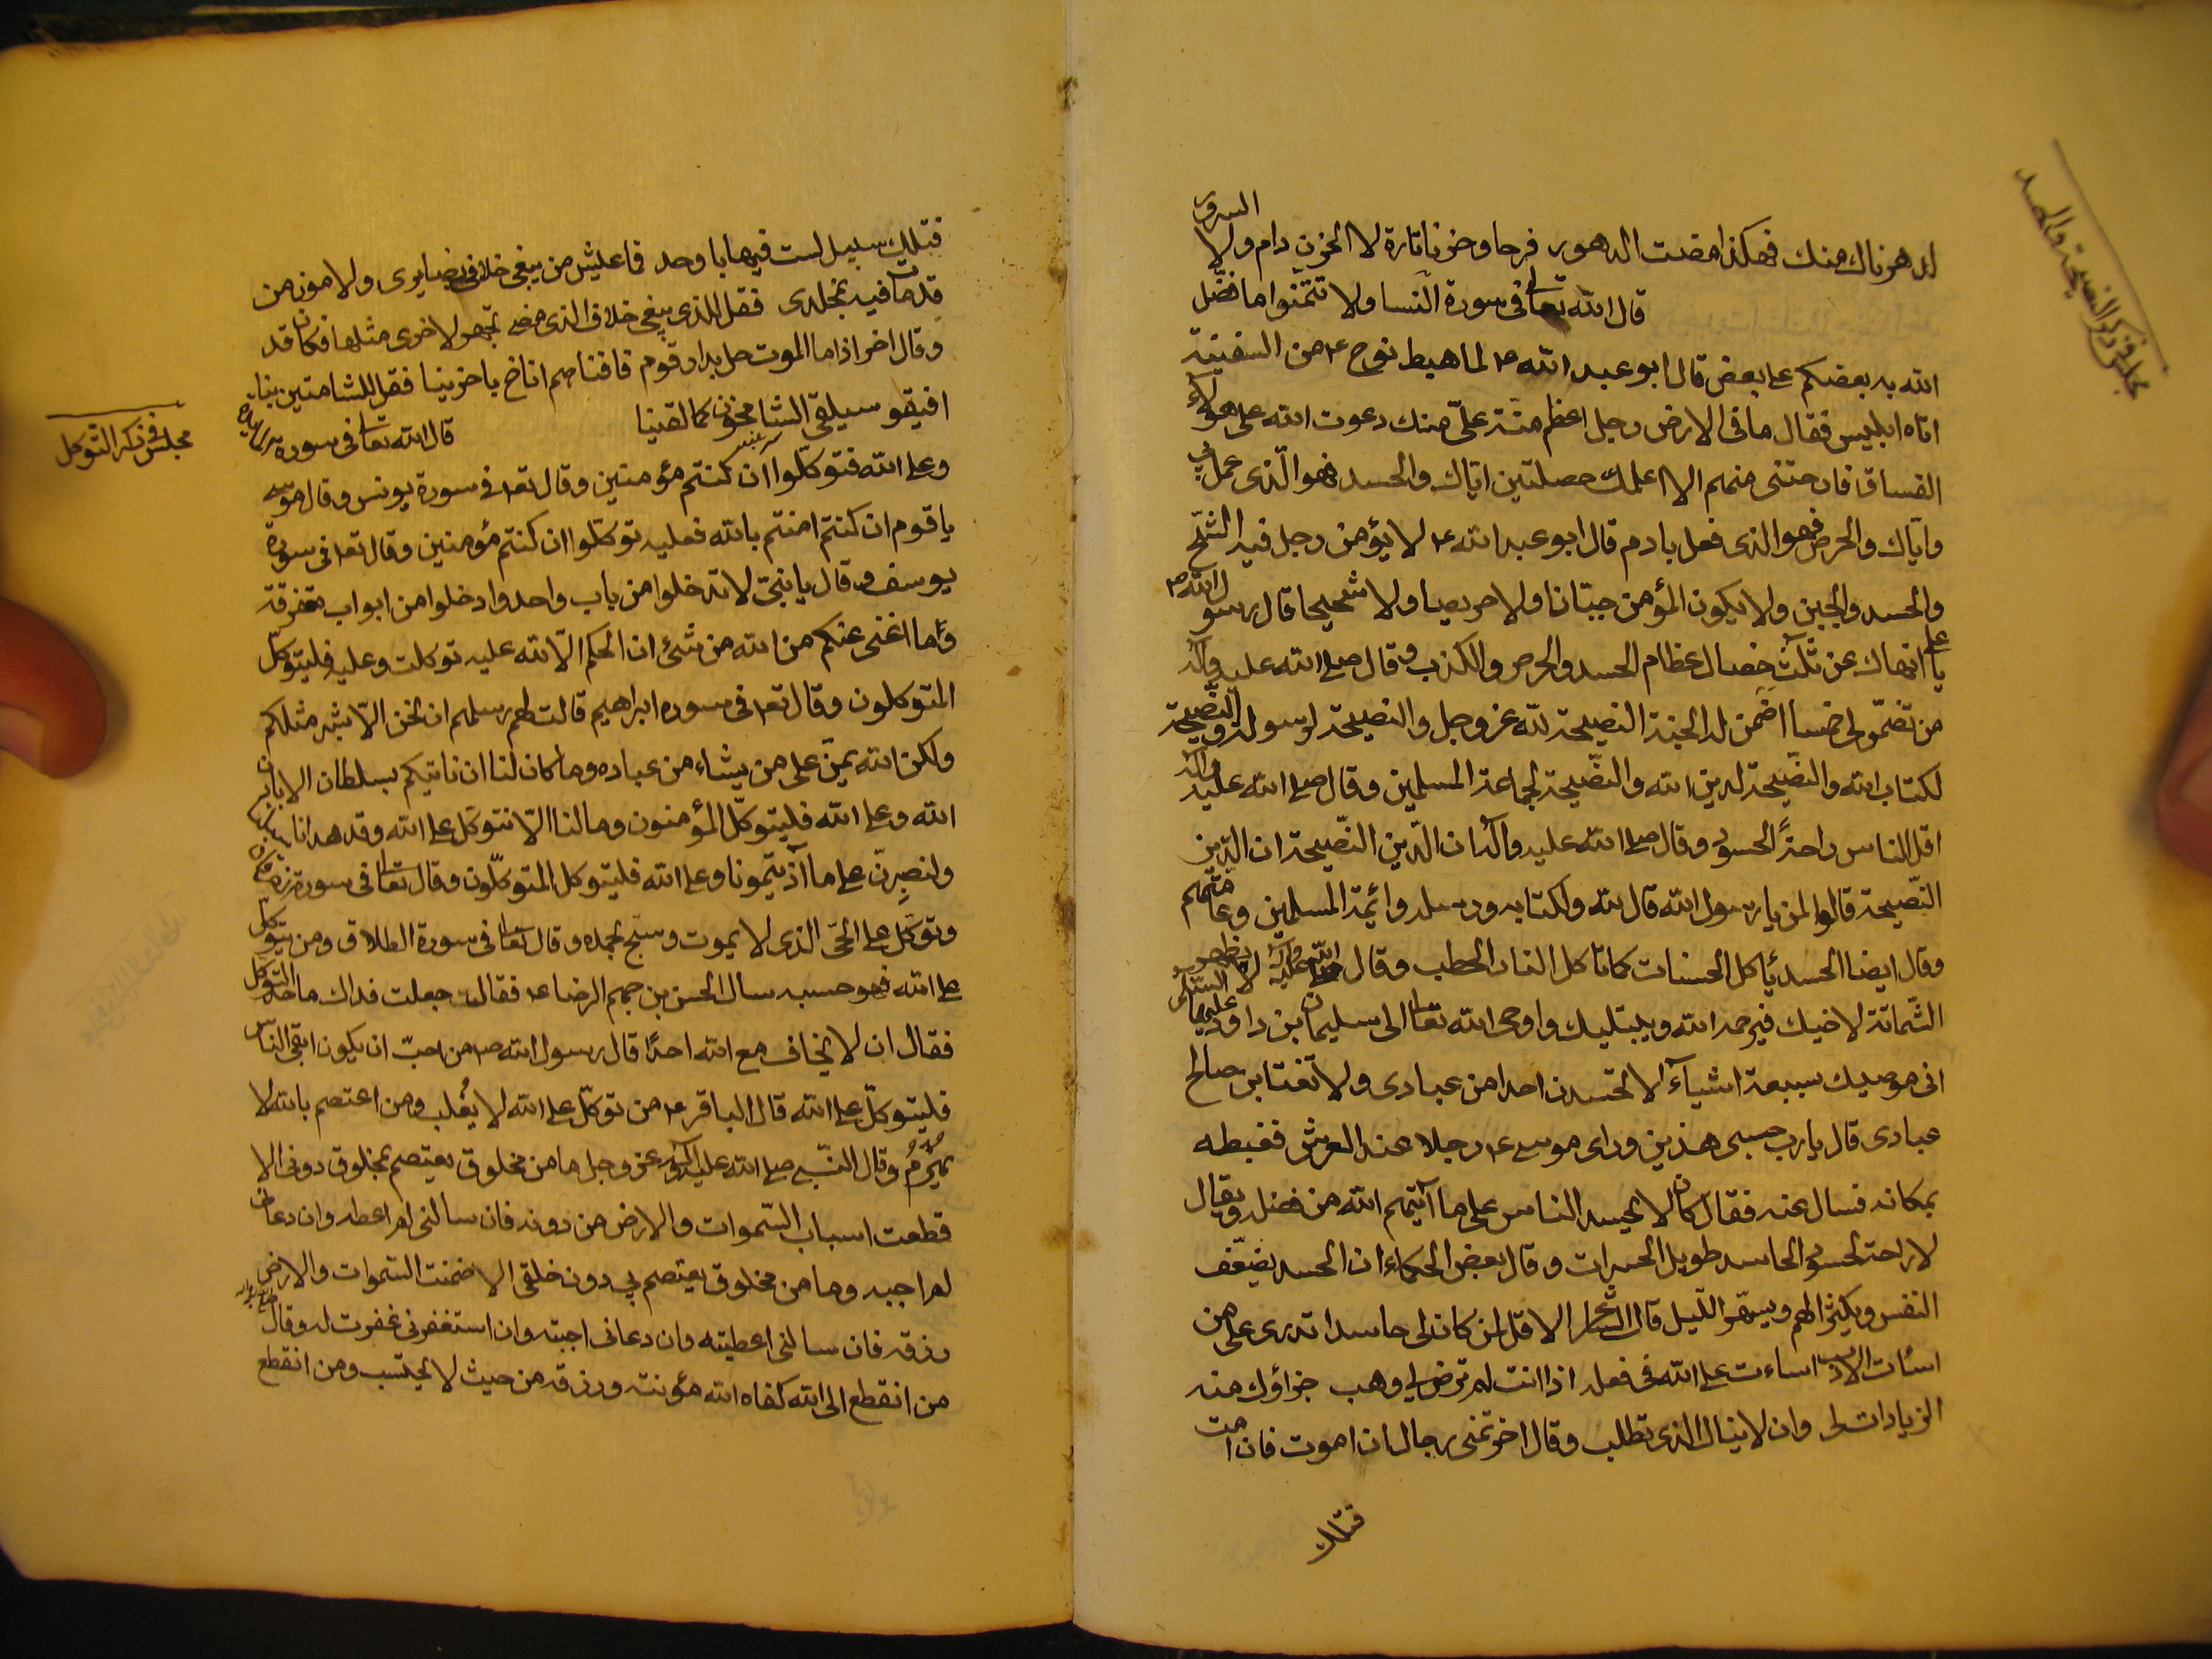 مجلس في ذكر النصيحة والحسد
الدهر نالك منك فهكذا مضت الدهور فرحا وحزنا تارة لا الحزن دام ولا السرور
قال الله تعالى في سورة النسا ولا تتمنوا ما فضّل
الله به بعضكم على بعض قال ابو عبد الله ع لما هبط نوح ع من السفينة
اتاه ابليس فقال ما في الارض رجل اعظم منّة علىّ منك دعوت الله على هؤلاء
الفساق فارحتنى منهم الا اعلمك خصلتين اياك والحسد فهو الّذى عمل بي
واياك والحرص فهو الذى فعل بادم قال ابو عبد الله ع لا يؤمن رجل فيه الشحّ
والحسد والجبن ولا يكون المؤمن جبانا ولا حريصا ولا شحيحا قال رسول الله ص
يا على انهاك عن ثلث خصال عظام الحسد والحرص والكذب وقال صلى الله عليه وآله
من تضمّن لى خمسا اضمن له الجنة النصيحة لله عز وجل والنصيحة لرسوله والنّصيحة
لكتاب الله والنصيحة لدين الله والنّصيحة لجماعة المسلمين وقال صلى الله عليه وآله
اقل الناس راحةً الحسود وقال صلى الله عليه وآله ان الدّين النّصيحة ان الدّين
النّصيحة قالوا لمن يا رسول الله قال لله ولكتابه ورسله وائمة المسلمين وعامّتهم
وقال ايضا الحسد يأكل الحسنات كما تاكل النار الحطب وقال صلى الله عليه وآله لا تظهر
الشّماتة لاخيك فيرحمه الله ويبتليك واوحى الله تعالى الى سليمان بن داود عليهما السلام
انى موصيك سبعة اشيآء لا تحسدن احدا من عبادى ولا تغتابن صالح
عبادى قال يا رب حسبى هذين وراى موسى ع رجلا عند العرش فغبطه
بمكانه فسال عنه فقال كان لا يحسد الناس على ما آتيهم الله من فضله ويقال
لا راحة لحسود الحاسد طويل الحسرات وقال بعض الحكماء ان الحسد يضعّف
النفس ويكثر الهم ويسهر اللّيل قال الشاعر الا قل لمن كان لى حاسدا تدرى على من
اسأت الادب اساءت على الله في فعله اذا انت لم ترض لى وهب جزاؤك منه
الزيادات لى وان لا ينال الذى تطلب وقال اخر تمنى رجال ان اموت فان امت
فتلك
فتلك سبيل لست فيها باوحد فما عيش من يبغى خلافى بضايرى ولا موت من
قد مات فيه بمخلدى فقل للذى يبغى خلاف الذى مضى تجهز لاخرى مثلها فكان قد
وقال اخر اذا ما الموت حل بدار قوم فافناهم اناخ باخرينا فقل للشامتين بنا
افيقو سيلقى الشامتون كما لقينا قال الله تعالى في سورة المائدة
مجلس في ذكر التوكل
وعلى الله فتوكّلوا ان كنتم مؤمنين وقال تعا في سورة يونس وقال موسى
يا قوم ان كنتم امنتم بالله فعليه توكّلوا ان كنتم مؤمنين وقال تعا في سورة
يوسف وقال يا بنىّ لا تدخلوا من باب واحد وادخلوا من ابواب متفرقة
وما اغنى عنكم من الله من شئ ان الحكم الّا لله عليه توكلت وعليه فليتوكّل
المتوكلون وقال تعا في سوره ابراهيم قالت لهم رسلهم ان نحن الّا بشر مثلكم
ولكن الله يمنّ على من يشاء من عباده وما كان لنا ان ناتيكم بسلطان الا باذن
الله وعلى الله فليتوكّل المؤمنون وما لنا الّا نتوكّل على الله وقد هدانا سبلنا
ولنصبرنّ على ما آذيتمونا وعلى الله فليتوكل المتوكّلون وقال تعالى في سورة فرقان
وتوكّل على الحىّ الذى لا يموت وسبّح بحمده وقال تعالى في سورة الطلاق ومن يتوكّل
على الله فهو حسبه سال الحسن بن جهم الرضا ع فقال له جعلت فداك ما حد التوكل
فقال ان لا يخاف مع الله احدًا قال رسول الله ص من احبّ ان يكون اتقى النّاس
فليتوكّل على الله قال الباقر ع من توكّل على الله لا يُغلب ومن اعتصم بالله لا
يهزمُ وقال النّبى صلى الله عليه وآله عز وجل ما من مخلوق يعتصم بمخلوق دونى الا
قطعت اسباب السّموات والارض من دونه فان سالنى لم اعطه وان دعانى
لم اجبه وما من مخلوق يعتصم بى دون خلقى الا ضمنت السّموات والارض
رزقه فان سالنى اعطيته وان دعانى اجبته وان استغفرنى غفرت له وقال
من انقطع الى الله كفاه الله مؤونته ورزقه من حيث لا يحتسب ومن انقطع